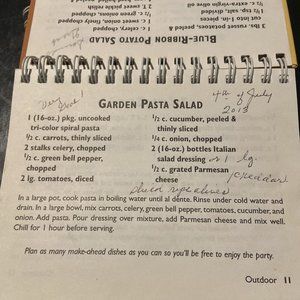 BLUE-RIBBON POTATO SALAD
russet potatoes, peeled &
cut into 1-inch pieces
salt, divided
extra-virgin olive oil
1 c. celery, chopped
sweet onion, chopped
green onions, chopped
sweet pickle relish
Very
GARDEN PASTA SALAD
4th of July
2013
1 (16-oz.) pkg. uncooked
tri-color spiral pasta
1/2 c. carrots, thinly sliced
2 stalks celery, chopped
1/2 c. green bell pepper,
chopped
2 lg. tomatoes, diced
1/2 c. cucumber, peeled &
thinly sliced
1/4 c. onion, chopped
2 (16-oz.) bottles Italian
salad dressing or 1 lg.
1/2 c. grated Parmesan
cheese cheddar
sliced ripe olives
In a large pot, cook pasta in boiling water until al dente. Rinse under cold water and
drain. In a large bowl, mix carrots, celery, green bell pepper, tomatoes, cucumber, and
onion. Add pasta. Pour dressing over mixture, add Parmesan cheese and mix well.
Chill for 1 hour before serving.
Plan as many make-ahead dishes as you can so you'll be free to enjoy the party.
Outdoor 11